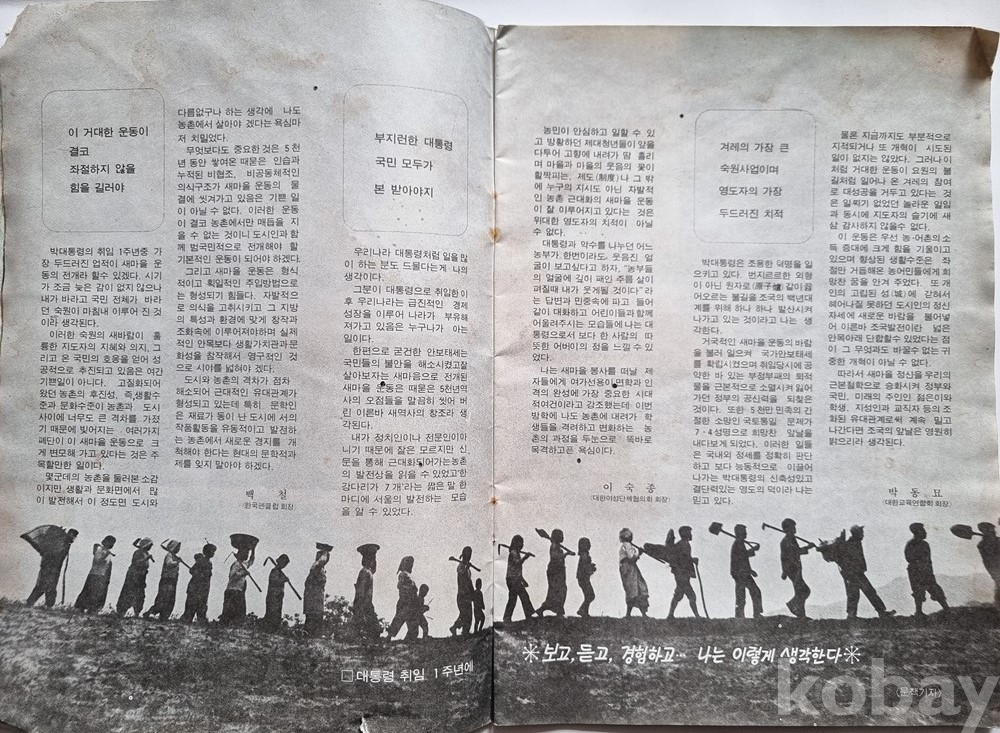 이 거대한 운동이
결코
좌절하지 않을
힘을 길러야
박대통령의 취임 1주년중 가
장 두드러진 업적이 새마을 운
동의 전개라 할수 있겠다. 시기
가 조금 늦은 감이 없지 않으나
내가 바라고 국민 전체가 바라
던 숙원이 마침내 이루어 진 것
이라 생각된다.
이러한 숙원의 새바람이 훌
륭한 지도자의 지혜와 의지, 그
리고 온 국민의 호응을 얻어 성
공적으로 추진되고 있음은 여간
기쁨일이 아니다. 고질화되어
왔던 농촌의 후진성, 즉,생활수
준과 문화수준이 농촌과 도시
사이에 너무도 큰 격차를 가졌
기 때문에 빚어지는 여러가지
폐단이 이 새마을 운동으로 크
게 변모해 가고 있다는 것은 주
목할만한 일이다.
몇군데의 농촌을 둘러본 소감
이지만 생활과 문화면에서 많
이 발전해서 이 정도면 도시와
다름없구나 하는 생각에 나도
농촌에서 살아야 겠다는 욕심마
저 치밀었다.
무엇보다도 중요한 것은 5천
년 동안 쌓여온 때묻은 인습과
누적된 비협조, 비공동체적인
의식구조가 새마을 운동의 물
결에 씻겨가고 있음은 기쁜 일
이 아닐 수 없다. 이러한 운동
이 결코 농촌에서만 매듭을 지
을 수 없는 것이니 도시인과 함
께 범국민적으로 전개해야 할
기본적인 운동이 되어야 하겠다.
그리고 새마을 운동은 형식
적이고 획일적인 주입방법으로
는 형성되기 힘들다. 자발적으
로 의식을 고취시키고 그 지방
의 특성과 환경에 맞게 창작과
조화속에 이루어져야하며 실제
적인 안목보다 생활가치관과 문
화성을 참작해서 영구적인 것
으로 시야를 넓혀야 겠다.
도시와 농촌의 격차가 점차
해소되어 근대적인 유대관계가
형성되고 있는데 특히 문학인
은 재료가 동이 난 도시에 서의
작품활동을 유동적이고 발전하
는 농촌에서 새로운 경지를 개
척해야 한다는 현대의 문학적과
제를 잊지 말아야 하겠다.
백 철
(한국펜클럽 회장)
부지런한 대통령
국민 모두가
본 받아야지
우리나라 대통령처럼 일을 많
이 하는 분도 드물다는게 나의
생각이다.
그분이 대통령으로 취임한 이
후 우리나라는 급진적인 경제
성장을 이루어 나라가 부유해
져가고 있음은 누구나가 아는
일이다.
한편으로 굳건한 안보태세는
국민들의 불안을 해소시켰고 잘
살아보자는 새마음으로 전개된
새마을 운동은 때묻은 5천년역
사의 오점들을 말끔히 씻어 버
린 이른바 새역사의 창조라 생
각된다.
내가 정치인이나 전문인이아
니기 때문에 잘은 모르지만 신
문을 통해 근대화되어가는농촌
의 발전상을 읽을 수 있었고한
강다리가 7개라는 짧은 말 한
마디에 서울의 발전하는 모습
을 알 수 있었다.
농민이 안심하고 일할 수 있
고 방황하던 제대청년들이 앞을
다투어 고향에 내려가 땀 흘리
며 마을과 마을의 웃음의 꽃이
활짝피는, 제도(制度)나 그 밖
에 누구의 지시도 아닌 자발적
인 농촌 근대화의 새마을 운동
이 잘 이루어지고 있다는 것은
위대한 영도자의 치적이 아닐
수 없다.
대통령과 악수를 나누던 어느
농부가 한번이라도 웃음진 얼
굴이 보고싶다고 하자, "농부들
의 얼굴에 깊이 패인 주름 살이
펴질때 내가 웃게될 것이다"라
는 답변과 민중속에 파고 들어
같이 대화하고 어린이들과 함께
어울려주시는 모습들에 나는 대
통령으로서 보다 한 사람의 따
뜻한 어버이의 정을 느낄 수 있
었다.
나는 새마을 봉사를 떠날 제
자들에게 여가선용이 면학과 인
격의 완성에 가장 중요한 시대
적여건이라고 강조했는데 이번
방학에 나도 농촌에 내려가 학
생들을 격려하고 변화하는 농
촌의 과정을 두눈으로 똑바로
목격하고픈 욕심이다.
이 숙 종
(대한여성단체협의회 회장)
겨레의 가장 큰
숙원사업이며
영도자의 가장
두드러진 치적
박대통령은 조용한 혁명을 일
으키고 있다. 번지르르한 외형
이 아닌 원자로(原子爐)같이 끓
어오르는 불길을 조국의 백년대
계를 위해 하나 하나 발산시켜
나가고 있는 것이라고 나는 생
각한다.
거국적인 새마을 운동의 바람
을 불러 일으켜 국가안보태세
를 확립시켰으며 취임당시에 공
약한 바 있는 부정부패의 퇴적
물을 근본적으로 소멸시켜 잃어
가던 정부의 공신력을 되찾은
것이다. 또한 5천만 민족의 간
절한 소망인 국토통일 문제가
7·4성명으로 희망찬 앞날을
내다보게 되었다. 이러한 일들
은 국내외 정세를 정확히 판단
하고 보다 능동적으로 이끌어
나가는 박대통령의 신축성있고
결단력있는 영도의 덕이라 나는
믿고 있다.
물론 지금까지도 부분적으로
지적되거나 또 개혁이 시도된
일이 없지는 않았다. 그러나 이
처럼 거대한 운동이 요원의 불
길처럼 일어나 온 겨레의 참여
로 대성공을 거두고 있다는 것
은 일찍기 없었던 놀라운 일임
과 동시에 지도자의 슬기에 새
삼 감사하지 않을수 없다.
이 운동은 우선 농·어촌의소
득 증대에 크게 힘을 기울이고
있으며 향상된 생활수준은 좌
절만 거듭해온 농어민들에게 희
망찬 꿈을 안겨 주었다. 또 개
인의 고립된 성(城)에 갇혀서
헤어나질 못하던 도시인의 정신
자세에 새로운 바람을 불어넣
어 이른바 조국발전이란 넓은
안목아래 단합할수 있었다는 점
이 그 무엇과도 바꿀수 없는 귀
중한 개혁이 아닐 수 없다.
따라서 새마을 정신을 우리의
근본철학으로 승화시켜 정부와
국민, 미래의 주인인 젊은이와
학생, 지성인과 교직자 등의 조
화된 유대관계로써 계속 밀고
나간다면 조국의 앞날은 영원히
밝으리라 생각된다.
박 동 묘
(대한교육연합회 회장)
□대통령 취임 1주년에
✳보고, 듣고, 경험하고… 나는 이렇게 생각한다✳
(문책기자)
kobay